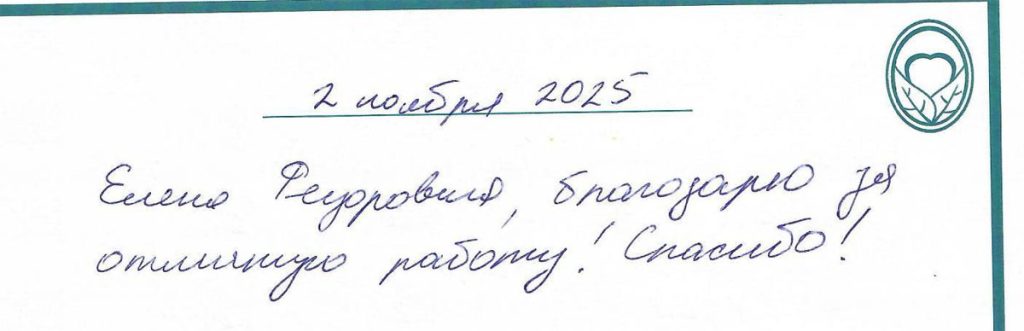 2 ноября 2025
Елена Федоровна, благодарю за
отличную работу! Спасибо!